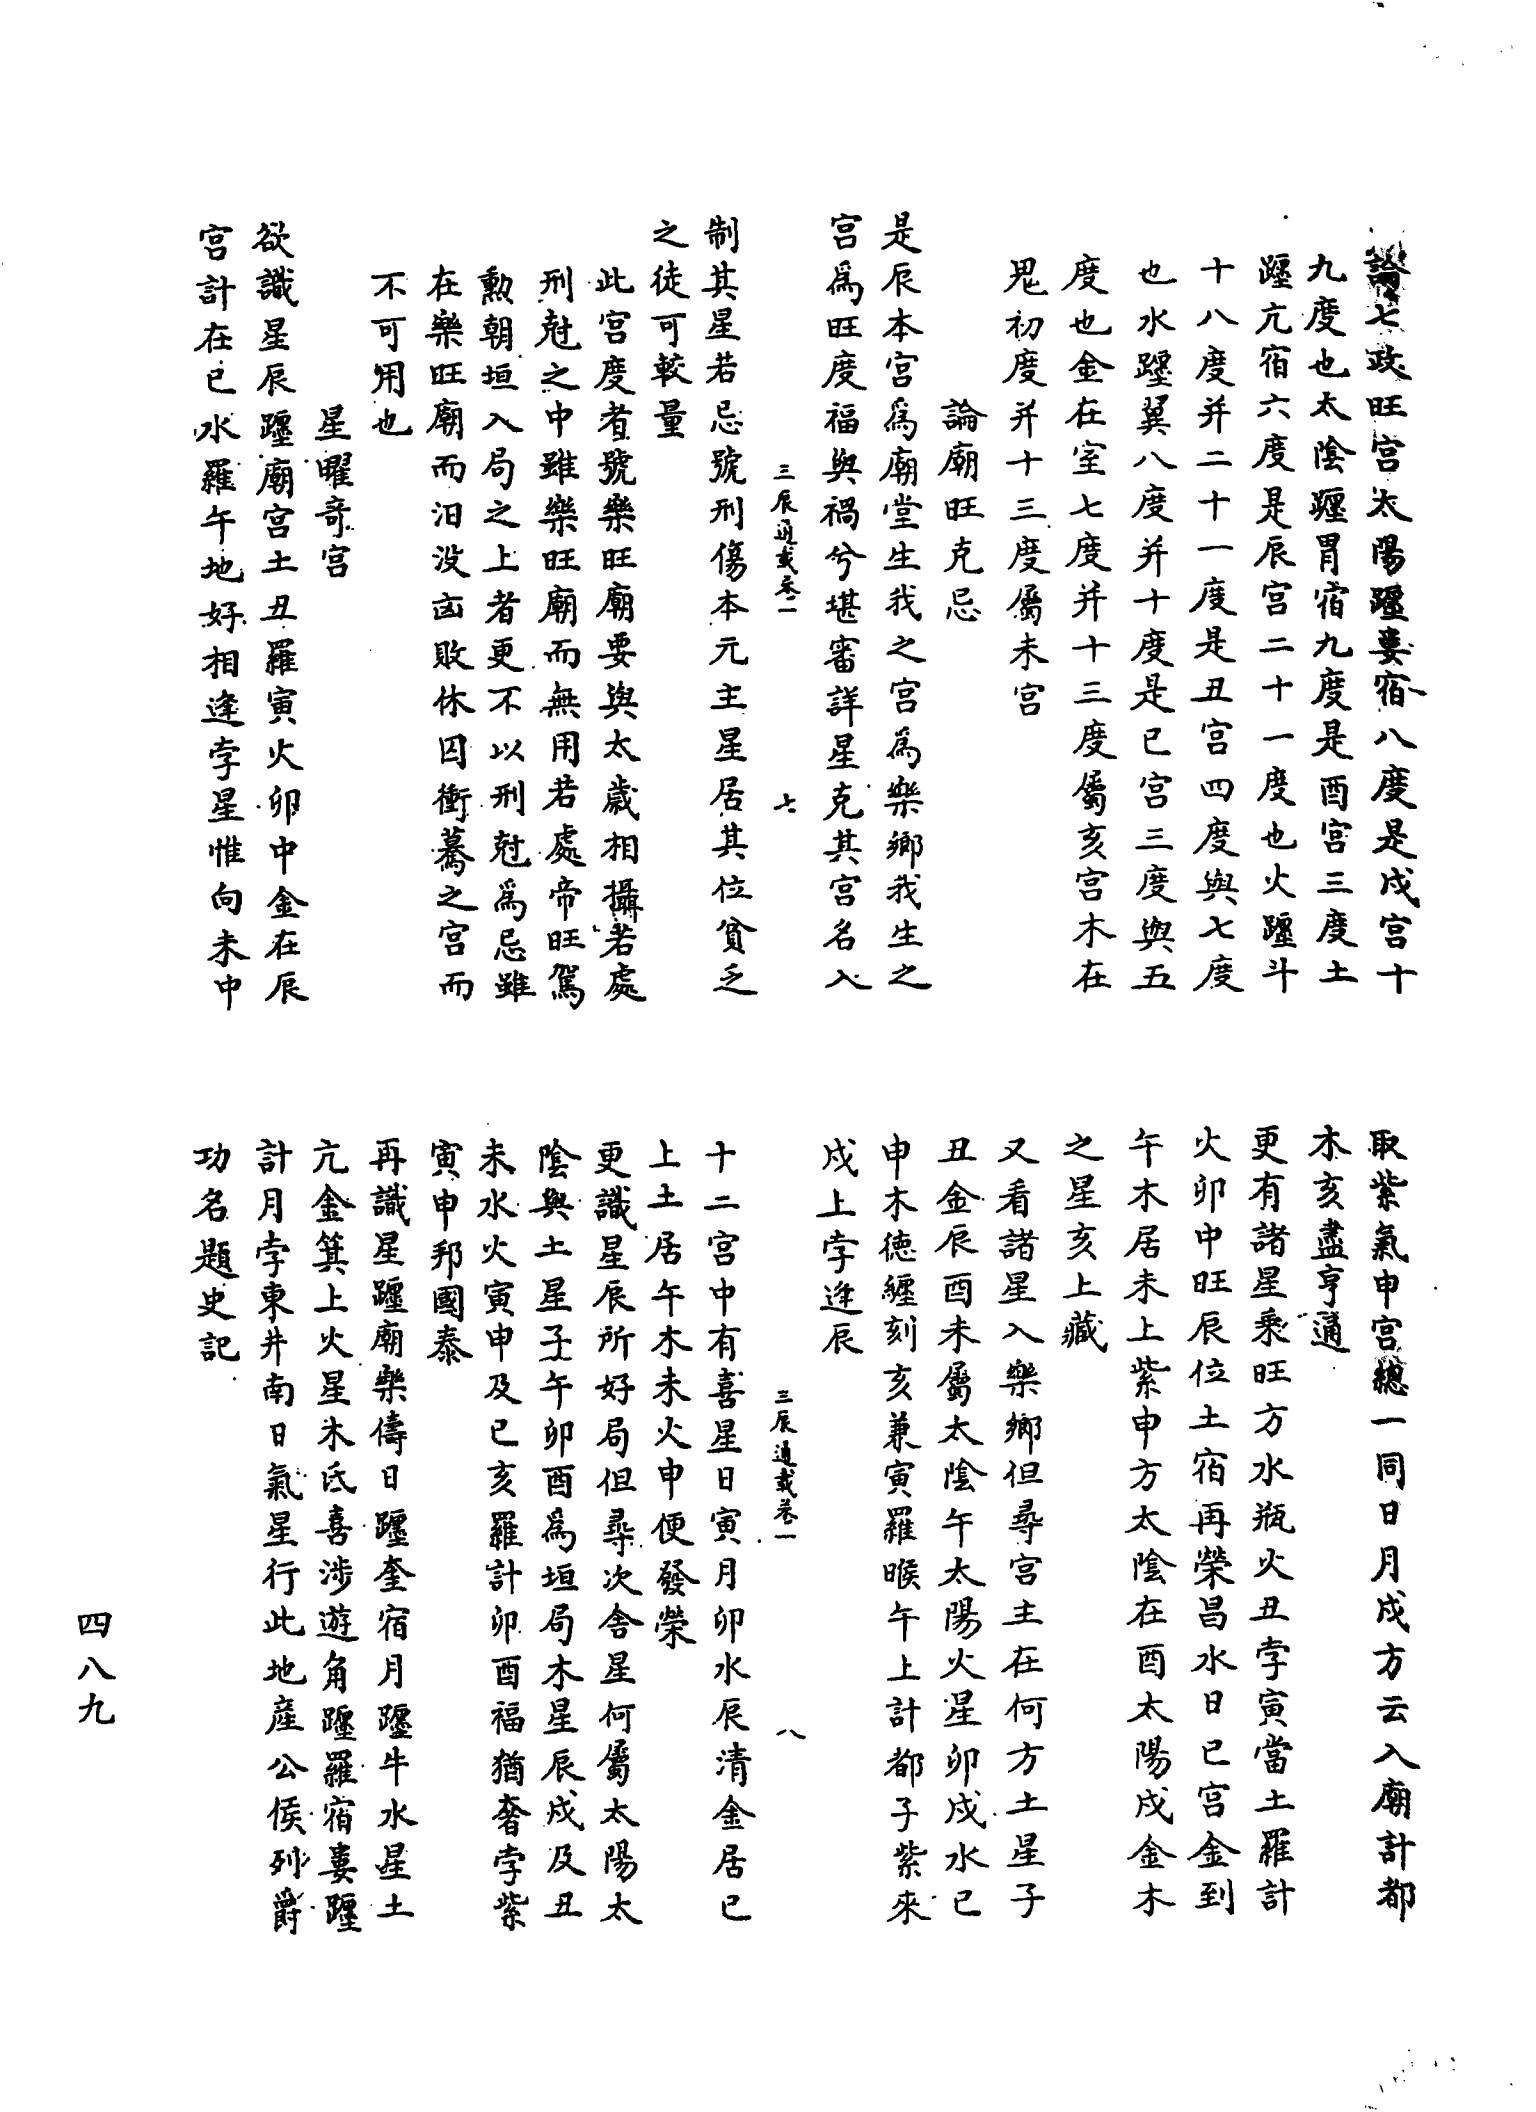 論七政旺宫太陽躔婁宿八度是戌宫十
九度也太陰躔胃宿九度是酉宫三度土
躔亢宿六度是辰宫二十一度也火躔斗
十八度并二十一度是丑宫四度與七度
也水躔翼八度并十度是巳宫三度與五
度也金在室七度并十三度屬亥宫木在
鬼初度并十三度屬未宫
論廟旺克忌
是辰本宫爲廟堂生我之宫爲樂鄉我生之
宫爲旺度福與禍兮堪審詳星克其宫名入
三辰通載卷一
七
制其星若忌號刑傷本元主星居其位貧乏
之徒可較量
此宫度者號樂旺廟要與太歲相攝若處
刑尅之中雖樂旺廟而無用若處帝旺駕
勲朝垣入局之上者更不以刑尅爲忌雖
在樂旺廟而汨没凶敗休囚衝驀之宫而
不可用也
星曜竒宫
欲識星辰躔廟宫土丑羅寅火卯中金在辰
宫計在巳水羅午地好相逢孛星惟向未中
取紫氣申宫總一同日月戌方云入廟計都
木亥盡亨通
更有諸星乘旺方水瓶火丑孛寅當土羅計
火卯中旺辰位土宿再榮昌水日巳宫金到
午木居未上紫申方太陰在酉太陽戌金木
之星亥上藏
又看諸星入樂鄉但尋宫主在何方土星子
丑金辰酉未屬太陰午太陽火星卯戌水巳
申木徳纏刻亥兼寅羅㬋午上計都子紫來
戌上孛逢辰
三辰通載卷一
八
十二宫中有喜星日寅月卯水辰清金居巳
上土居午木未火申便發榮
更識星辰所好局但尋次舎星何屬太陽太
陰與土星子午卯酉爲垣局木星辰戌及丑
未水火寅申及巳亥羅計卯酉福猶奢孛紫
寅申邦國泰
再識星躔廟樂儔日躔奎宿月躔牛水星土
亢金箕上火星氷氐喜涉遊角躔羅宿婁躔
計月孛東井南日氣星行此地産公侯列爵
功名題史記
四八九